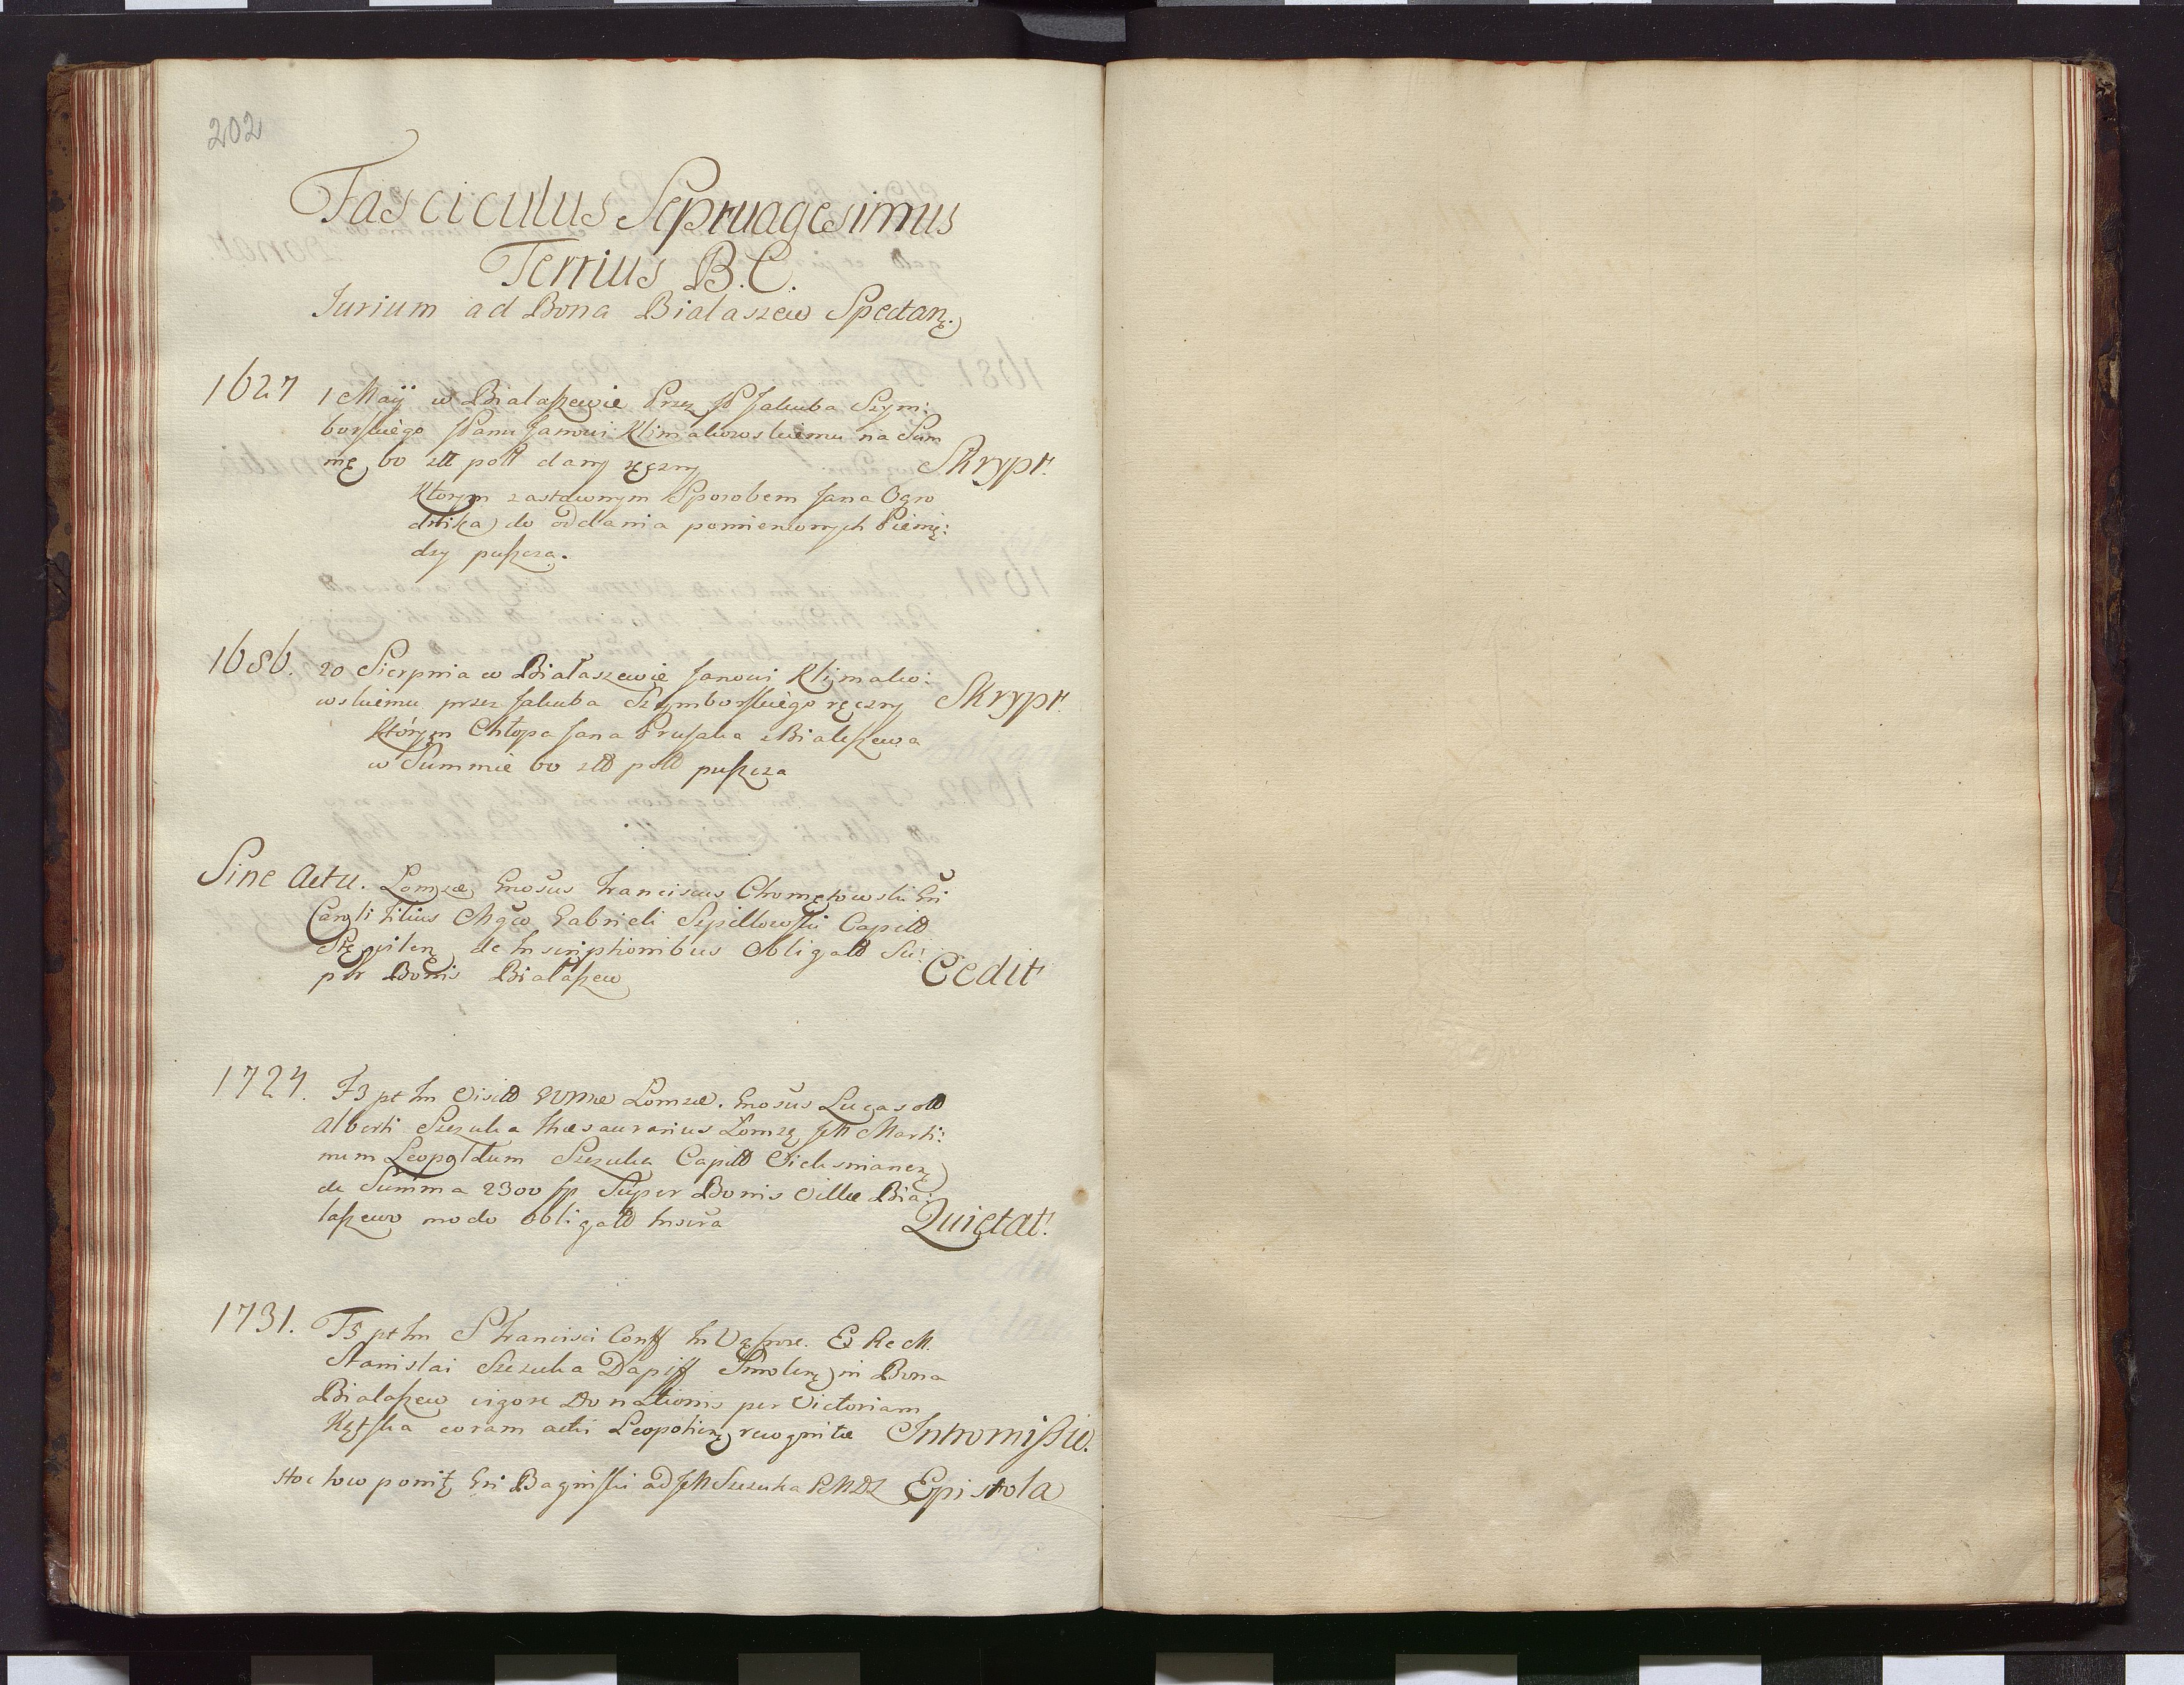 202
Fasciculus Septuagesimus
Tertius B. C.
Jurium ad Bona Bialaszew Spectan.
1627 1 Maÿ w Bialaszewie Przez JP Jakuba Szym:
borskiego JPanu Janowi Klimakowskiemu na Sum
mę 60 złł poll dany ręczny Skrypt.
Ktorym zastawnym Sposobem Jana Ogro
dnika do oddania pomienionych Pienię:
dzy puszcza.
1686. 20 Sierpnia w Białaszewie Janowi Klimako:
wskiemu przez Jakuba Szymborskiego ręczny Skrypt.
Którym Chłopa Jana Prusaka z Bialeszewa
w Summie 60 złł poll puszcza
Sine Actu. Lomzæ Gnosus Franciscus Chomętowski Gni
Caroli Filius Mgco Gabrieli Szpillowski Capitt
de Inscriptionibus Obligatt Su:
ptr Bonis Bialaszew Cedit
1724. F3 pt Im Visitt BVMæ Lomzæ. Gnosus Lucas olł
Alberti Szczuka Thesaurarius Łomzę JM Marti:
num Leopoldum Szczuka Capitt
de Summa 2300 fp Super Bonis Villæ Bia:
laszewo modo obligatt Inscra Quietat.
1731. F3 pt Im S Francisci Conff In Vąsosze. Ex Re M.
Stanislai Szczuka Dapiff Smolenę in Bona
Bialaszew vigore Donationis per Victoriam
Kętska coram actis recognitæ Intromissio.
Hoc loco ponit Gni Baginski ad JM Szczuka Epistola